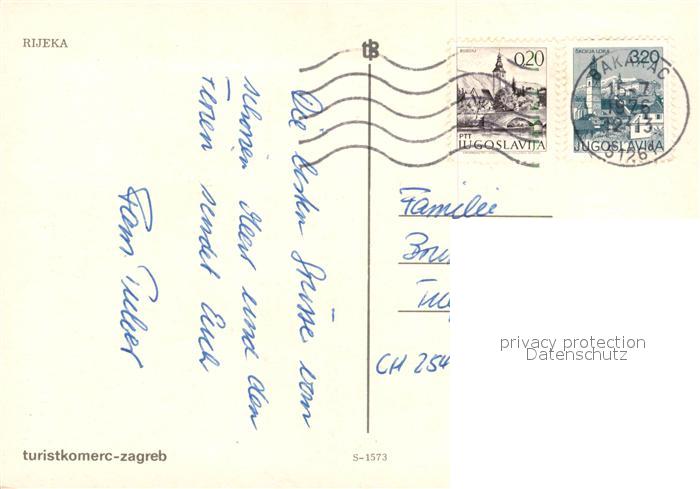 RIJEKA
Die besten Grüsse vom
schönen Meer und den
Ferien sendet Euch
Fam.
0,20
PTT
JUGOSLAVIJA
ŠKOFJA LOKA
3,20
JUGOSLAVIJA
15-7
1976
51261
Familie
CH 254
privacy protection
Datenschutz
turistkomerc-zagreb
S-1573